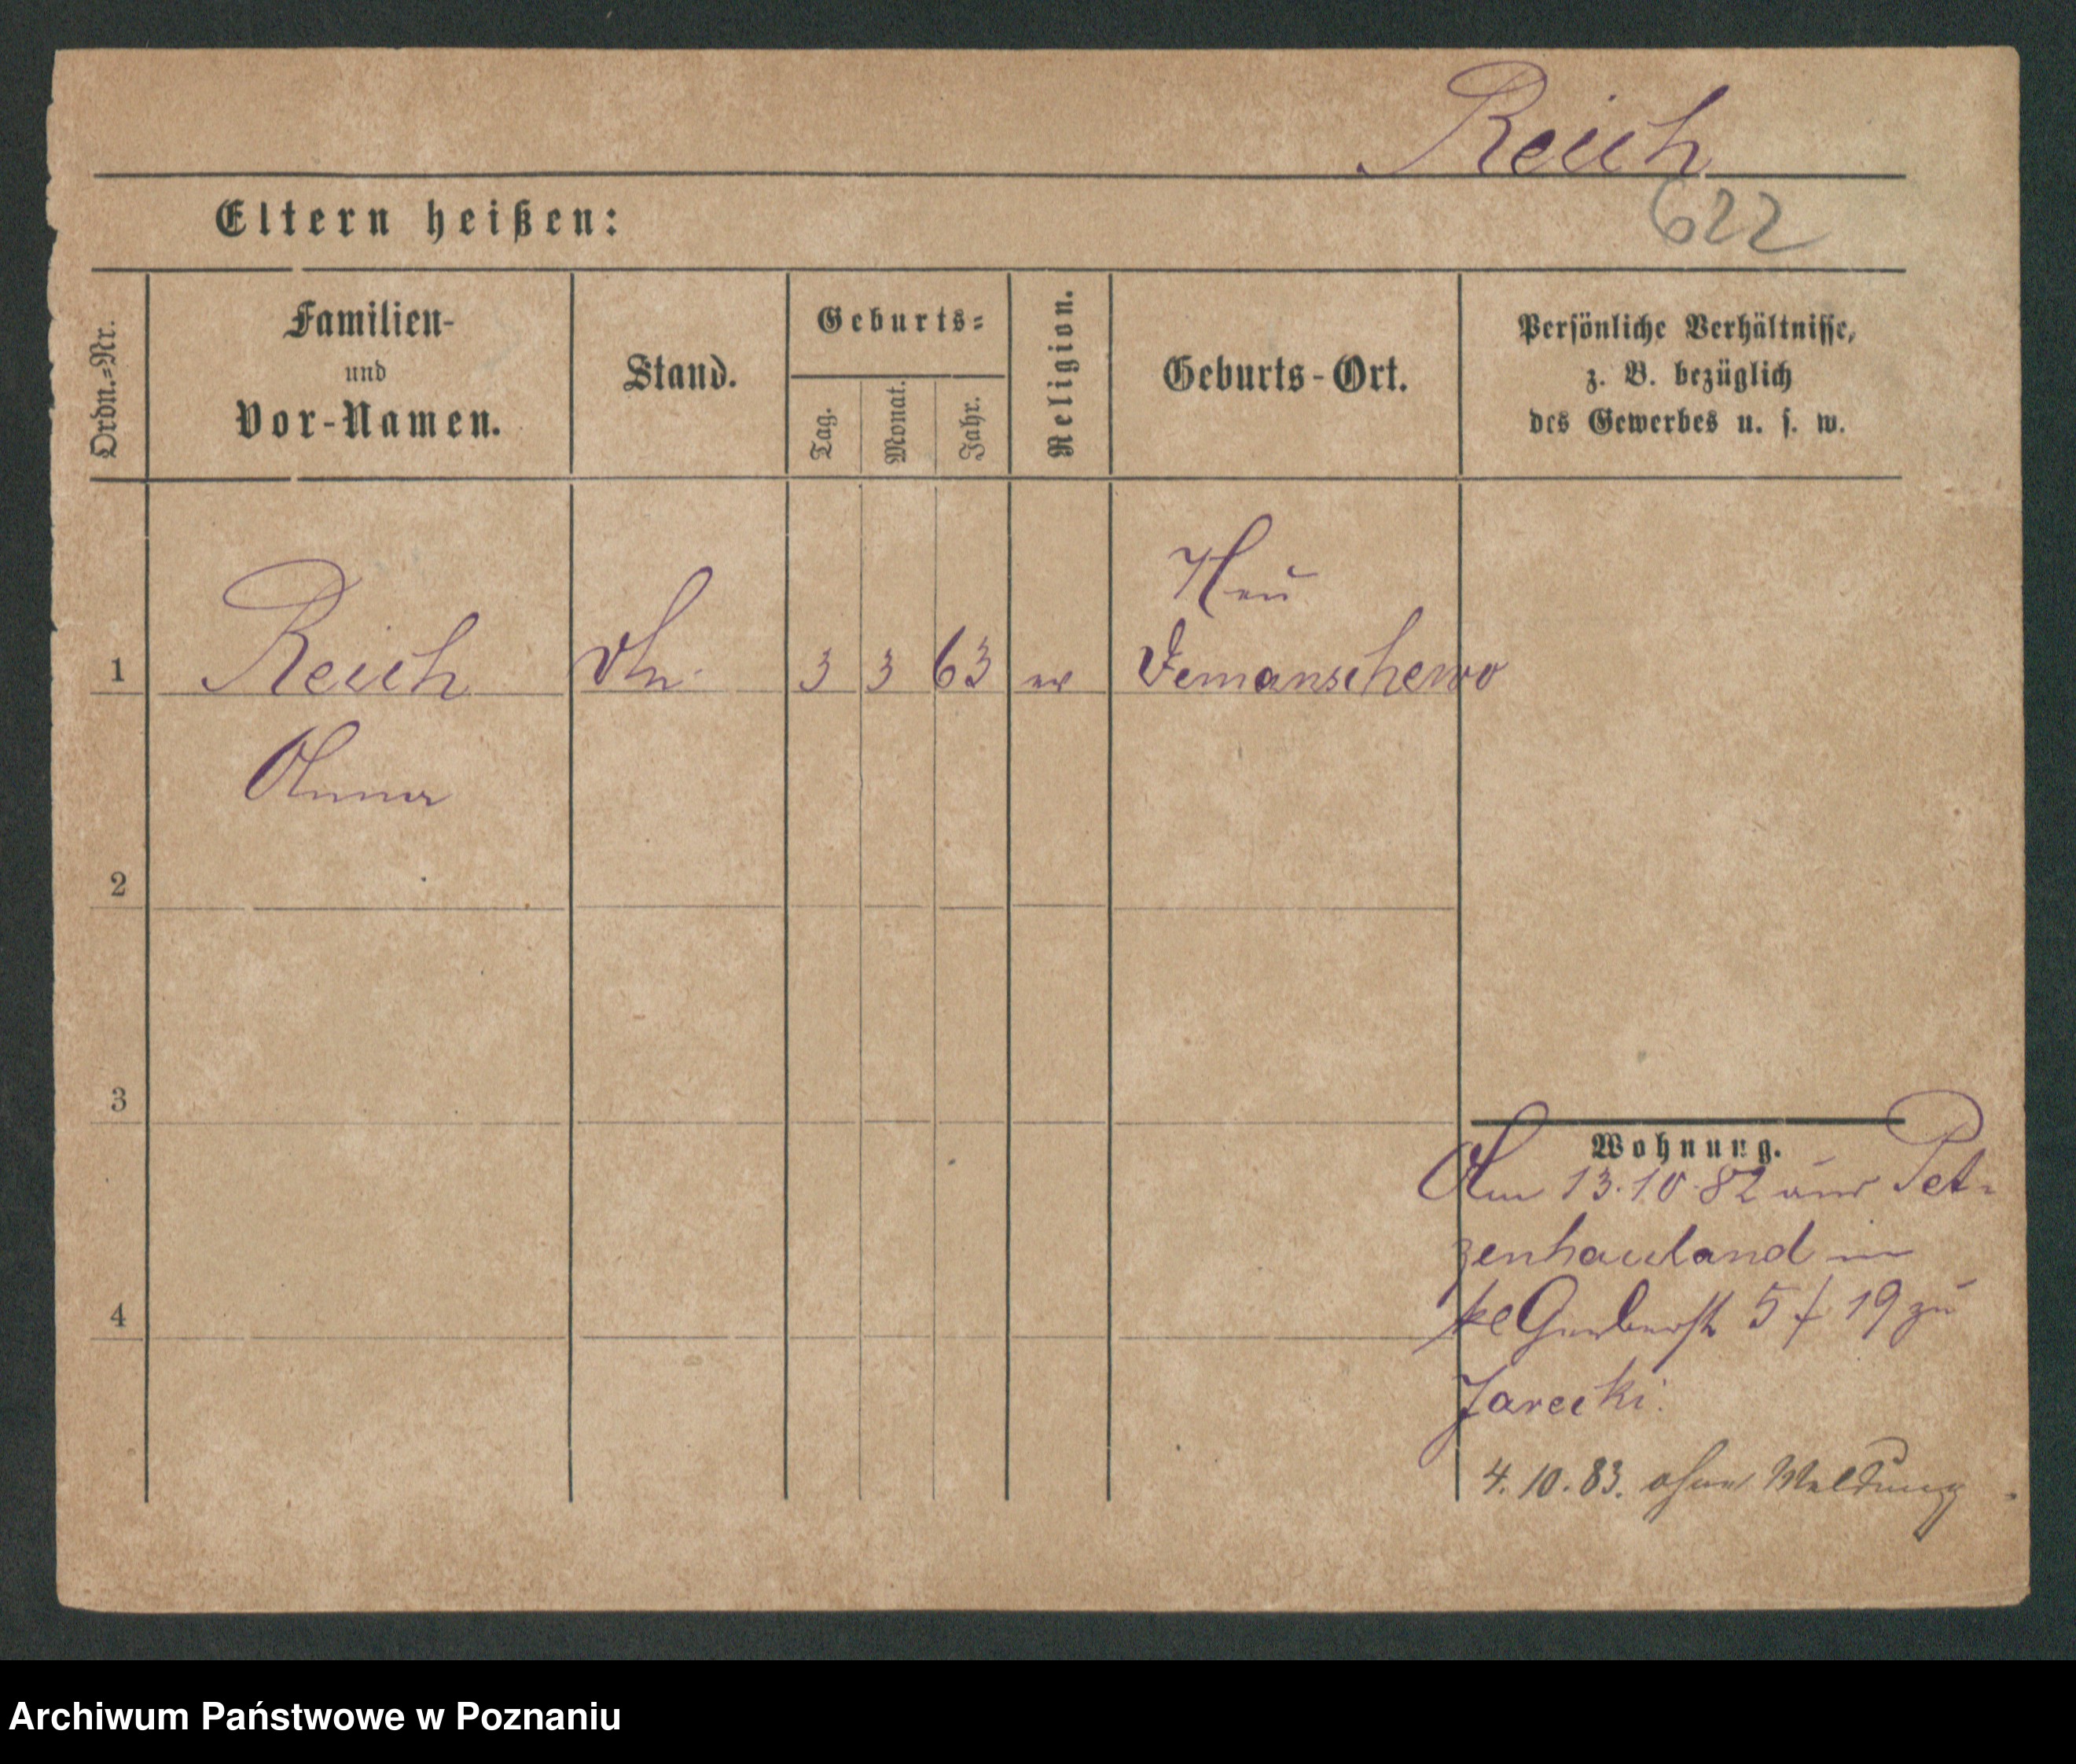 Reich
622
Eltern heißen:
Ordn.-Nr.
Familien-
und
Vor-Namen.
Stand.
Geburts-
Tag.
Monat.
Jahr.
Religion.
Geburts-Ort.
Persönliche Verhältnisse,
z. B. bezüglich
des Gewerbes u. s. w.
Neu
1 Reich 3 3 63 ev Demanschewo
Anna
2
3
4
Wohnung.
Am 13.10.82 aus Pet-
zenhauland in
kl Gerberst 5 / 19 zu
Jarecki.
4.10.83. ohne Meldung
Archiwum Państwowe w Poznaniu